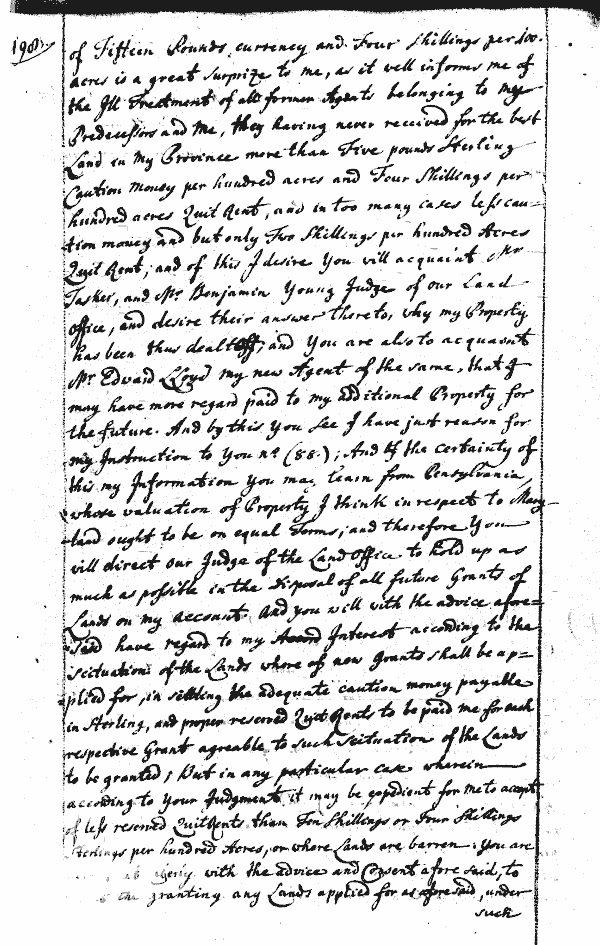 190
of Fifteen Pounds currency and Four Shillings per 100.
acres is a great Surprize to me, as it well informs me of
the Ill Treatment of all former Agents belonging to my
Predecessors and Me, they having never received for the best
Land in my Province more than Five pounds Sterling
Caution Money per hundred acres and Four Shillings per
hundred acres Quit Rent, and in too many cases less cau=
tion money and but only Two Shillings per hundred Acres
Quit Rent; and of this I desire You will acquaint Mr
Tasker, and Mr. Benjamin Young Judge of our Land
Office, and desire their answer thereto, why my Property
has been thus dealt Off; and You are also to acquaint
Mr. Edward Lloyd my new Agent of the same, that I
may have more regard paid to my additional Property for
the future. And by this You See I have just reason for
my Instruction to You no. (88.); And of the certainty of
this my Information You may learn from Pensylvania,
whose valuation of Property I think in respect to Mary
land ought to be on equal Terms; and therefore You
will direct our Judge of the Land Office to hold up as
much as possible in the Disposal of all future Grants of
Lands on my account And you will with the advice afore=
said have regard to my Interest according to the
scituation of the Lands where of new Grants shall be ap=
plied for, in settling the adequate caution money payable
in Sterling, and proper reserved Quit Rents to be paid me for each
respective Grant agreable to such Scituation of the Lands
to be granted; But in any particular case wherein
according to Your Judgment it may be expedient for Me to accept
of less reserved Quit Rents than Ten Shillings or Four Shillings
Sterlings per hundred Acres, or where Lands are barren: You are
with the advice and Consent afore said, to
the granting any Lands applied for as aforesaid, under
such